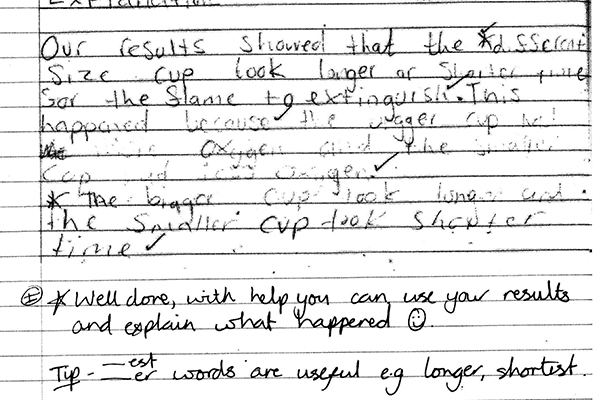 Explanation
Our results showed that the *different
Size cup took longer or shorter time
for the flame to extinguish. This
happened because the bigger cup had
more oxygen and the smaller
cup had less oxygen.
* The bigger cup took longer and
the smaller cup took shorter
time
+ * Well done, with help you can use your results
and explain what happened ☺.
Tip - __est
__er words are useful e.g longer, shortest.